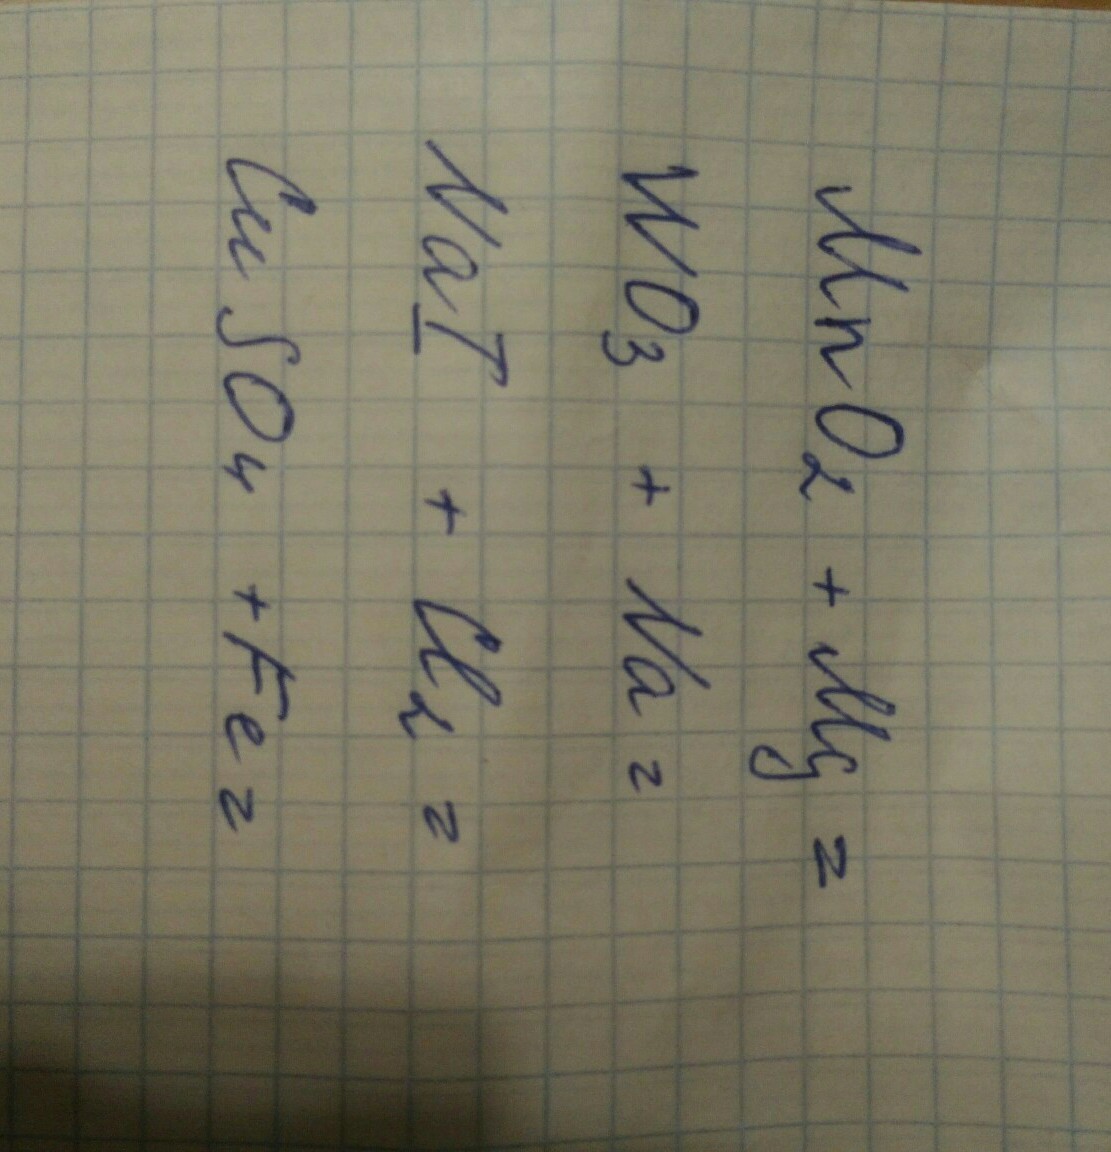 MnO₂ + Mg =
WO₃ + Na =
NaI + Cl₂ =
CuSO₄ + Fe =